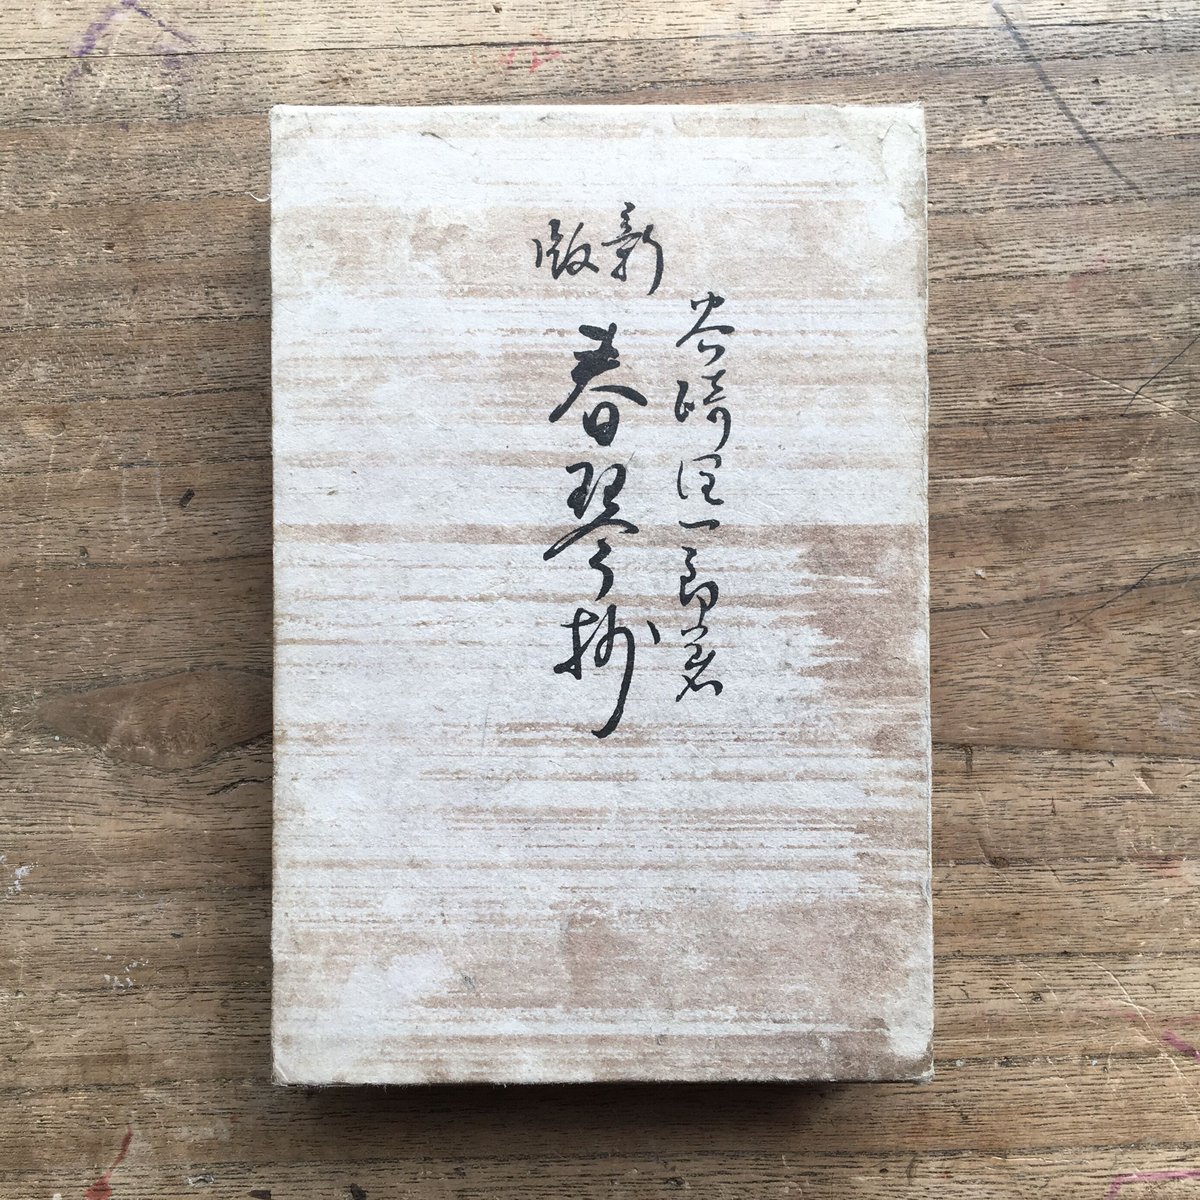 新版
谷崎潤一郎著
春琴抄